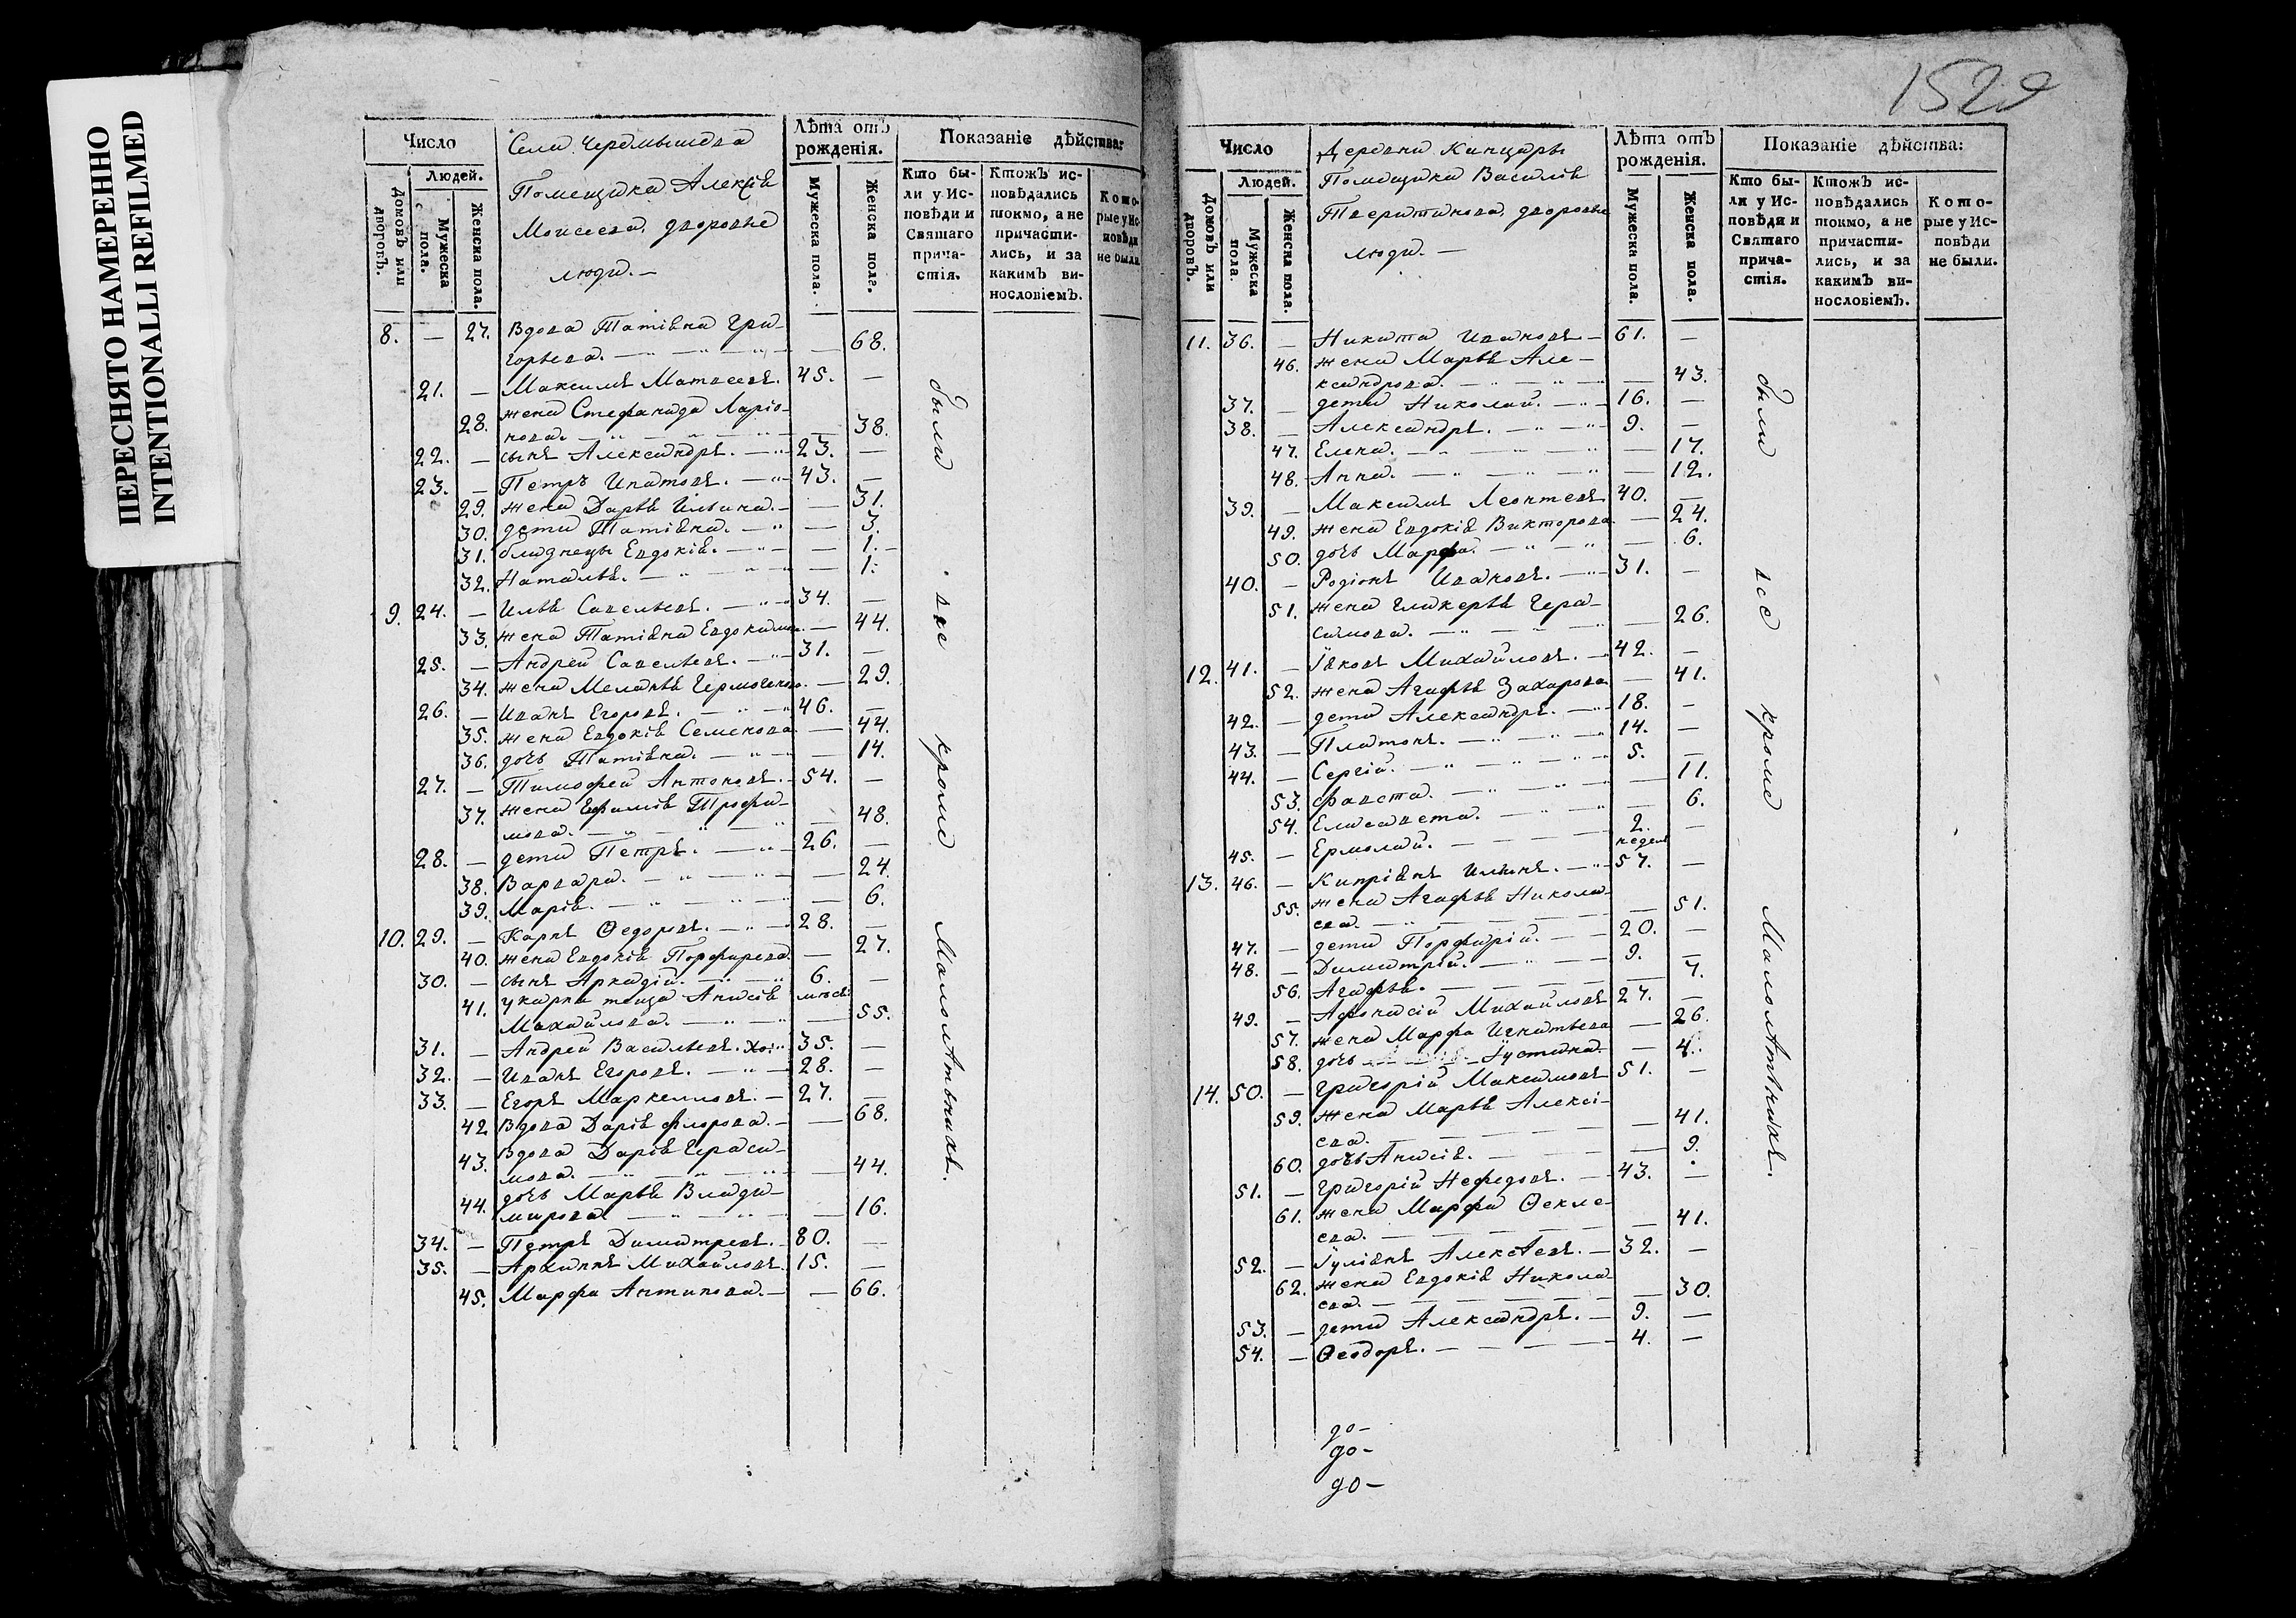 ПЕРЕСНЯТО НАМЕРЕННО
INTENTIONALLI REFILMED
Число
Людей.
Домовъ или дворовъ.
Мужеска пола.
Женска пола.
Села Черемышева
Помещика Алексѣя
Моисеева дворовые
люди. —
Лѣта отъ рожденія.
Мужеска пола.
Женска пола.
Показаніе дѣйства:
Кто бы-
ли у Ис-
повѣди и
Святаго
прича-
стія.
Ктожъ ис-
повѣдались
токмо, а не
причасти-
лись, и за
какимъ ви-
нословіемъ.
Кото-
рые у Ис-
повѣди
не были.
8. — 27. Вдова Татіяна Гри-
горьева. — — 68.
21. — Максимъ Матвеевъ. 45. —
28. жена Стефанида Ларіо-
нова. — — 38.
22. — сынъ Александръ. — 23. —
23. — Петръ Ипатовъ. — 43. —
29. жена Дарья Ильина. — — 31.
30. дети Татіяна. — — 3.
31. близнецы Евдокія. — — 1.
32. Наталья. — — 1.
9. 24. — Илья Савельевъ. — 34. —
33. жена Татіяна Евдокимова. — 44.
25. — Андрей Савельевъ. — 31. —
34. жена Меланья Гермогенова. — 29.
26. — Иванъ Егоровъ. — 46. —
35. жена Евдокія Семенова — 44.
36. дочь Татіяна. — — 14.
27. — Тимофей Антоновъ. — 54. —
37. жена Ефимія Трофи-
мова. — — 48.
28. — дети Петръ. — 26. —
38. Варвара. — — 24.
39. Марія. — — 6.
10. 29. — Карпъ Ѳедоровъ. — 28. —
40. жена Евдокія Порфирева. — 27.
30. — сынъ Аркадій. — 6. —
мѣсе:
41. У карпа теща Анисія
Михайлова. — — 55.
31. — Андрей Васильевъ. хо: 35. —
32. — Иванъ Егоровъ. — 28. —
33. — Егоръ Маркелловъ. — 27. —
42 Вдова Дарія Флорова. — — 68.
43. Вдова Дарія Гераси-
мова. — — 44.
44. дочь Марья Влади-
мирова — — 16.
34. — Петръ Димитревъ. — 80. —
35. — Архиппъ Михайловъ. 15. —
45. Марфа Антипова. — — 66.
были все кроме Малолѣтныхъ.
1529
Число
Людей.
Домовъ или дворовъ.
Мужеска пола.
Женска пола.
Деревни Канцары
Помещика Василія
Тверитинова дворовые
люди. —
Лѣта отъ рожденія.
Мужеска пола.
Женска пола.
Показаніе дѣйства:
Кто бы-
ли у Ис-
повѣди и
Святаго
прича-
стія.
Ктожъ ис-
повѣдались
токмо, а не
причасти-
лись, и за
какимъ ви-
нословіемъ.
Кото-
рые у Ис-
повѣди
не были.
11. 36. — Никита Ивановъ — 61. —
46. жена Марья Але-
ксандрова. — — 43.
37. — дети Николай. — 16. —
38. — Александръ. — 9. —
47. Елена. — — 17.
48. Анна. — — 12.
39. — Максимъ Леонтевъ 40. —
49. жена Евдокія Викторова — 24.
50. дочь Марфа. — — 6.
40. — Родіонъ Ивановъ. — 31. —
51. жена Гликерья Гера-
симова. — — 26.
12. 41. — Іяковъ Михайловъ. — 42. —
52. жена Агафья Захарова — 41.
42. — дети Александръ. — 18. —
43. — Платонъ. — 14. —
44. — Сергій. — 5. —
53. Фавста. — — 11.
54. Елисавета. — — 6.
45. — Ермолай. — 2. —
недели
13. 46. — Кипріянъ Ильинъ. — 57. —
55. жена Агафья Никола-
ева. — — 51.
47. — дети Порфирій. — 20. —
48. — Димитрій. — 9. —
56. Агафья. — — 7.
49. — Афонасій Михайловъ 27. —
57. жена Марфа Игнатьева — 26.
58. дочь — Іустина. — 4.
14. 50. — Григорій Максимовъ 51. —
59. жена Марья Алексі-
ева. — — 41.
60. дочь Анисія. — — 9.
51. — Григорій Нефедовъ. — 43. —
61. жена Марфа Ѳекле-
ева. — — 41.
52. — Іуліянъ Алексѣевъ. — 32. —
62. жена Евдокія Никола-
ева. — — 30.
53. — дети Александръ. — 9. —
54. — Ѳеодоръ. — 4. —
были все кроме Малолѣтныхъ.
до —
до —
до —